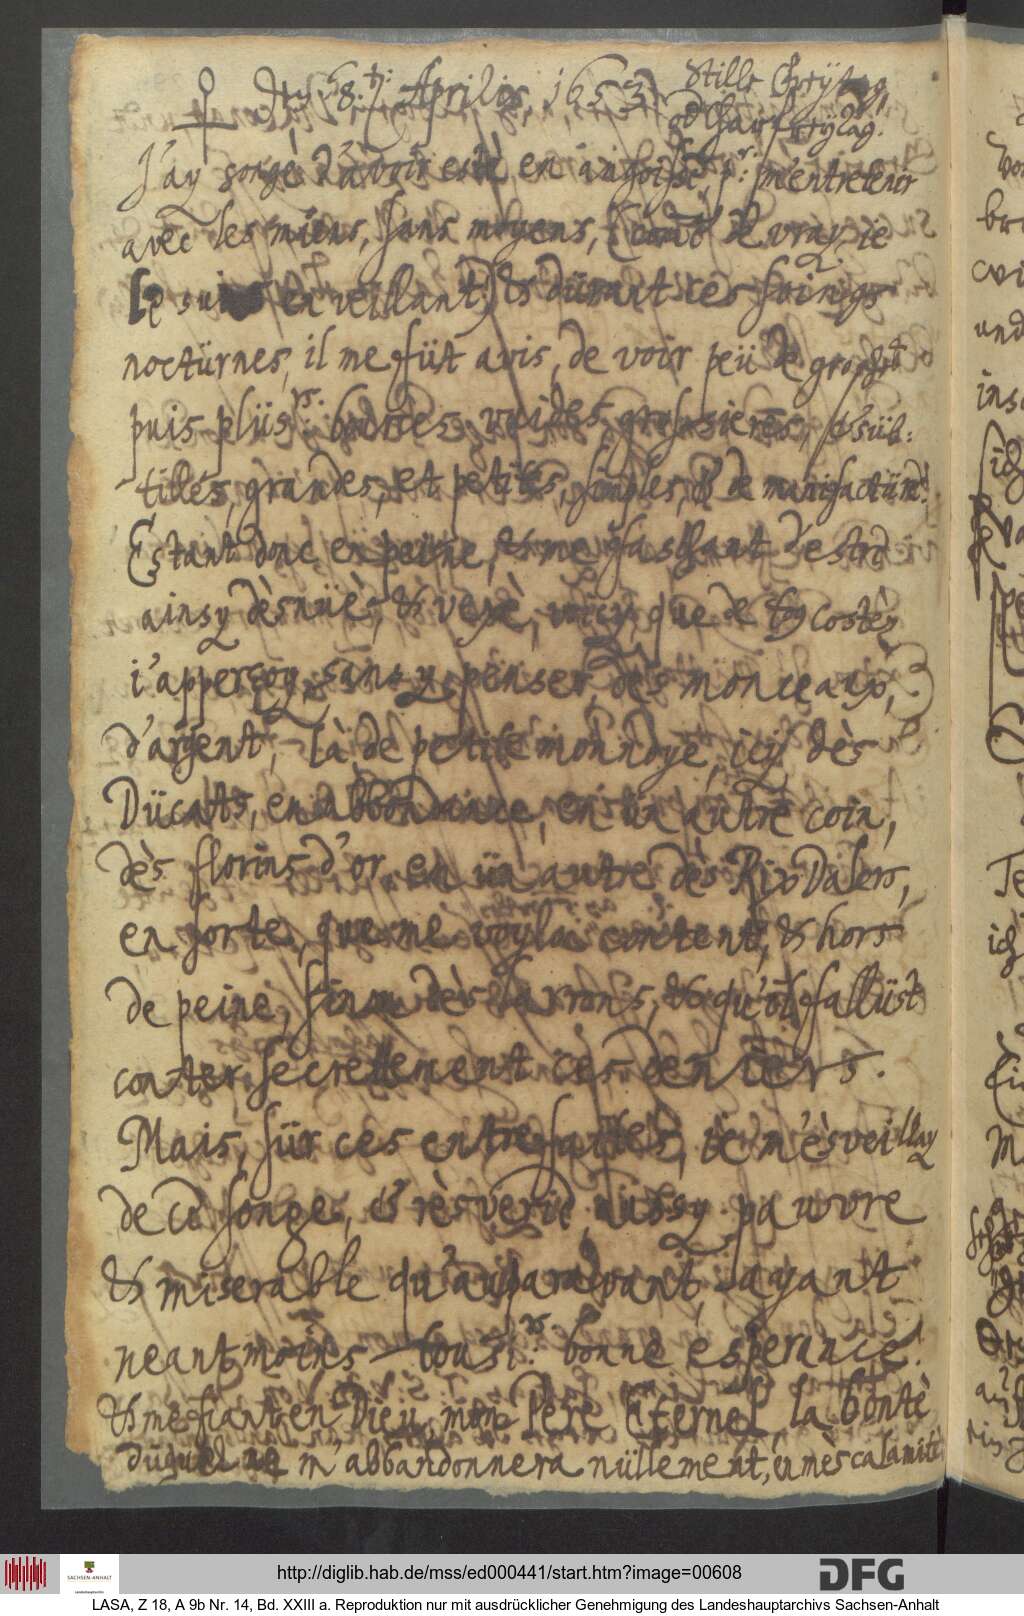 den 8.t: Aprilis, 1653. Stille Freÿtag,
od Charfreÿtag.
J'ay songè d'avoir estè en angoisse, p.r m'entretenir
avec les miens, sans moyens, (comme de vray, ie
le suis en veillant) & dürant ces soings
nocturnes, il me füt avis, de voir peü de
puis plüs.rs bources vuides, grossieres, & süb-
tilles, grandes, et petites, simples, & de manifactüre.
Estant donc en peine, & me faschant d'estre
ainsy dèsnüè, & vexè, voicy, que de tous costèz
i'apperçoy, sans y penser, dès monceaux,
d'argent, là de petite monnoye, icy dès
Dücats, en abbondance, en ün aütre coin,
dès florins d'or, en ün autre dès RixDalers,
en sorte, que me voyla content, & hors
de peine, sinon dès larrons, & qu'il fallüst
conter secrettement ces deniers.
Mais, sür ces entrefaittes, ie m'èsveillay
de ce songe, & rèsverie, aussy pauvre
& miserable qu'auparavant, ayant
neantmoins tous.rs bonne esperance,
& me fiant en Dieu, mon Pere Eternel, la bontè
düquel ne m'abbandonnera nüllement, en mès calamitèz
http://diglib.hab.de/mss/ed000441/start.htm?image=00608
SACHSEN-ANHALT
Landeshauptarchiv
DFG
LASA, Z 18, A 9b Nr. 14, Bd. XXIII a. Reproduktion nur mit ausdrücklicher Genehmigung des Landeshauptarchivs Sachsen-Anhalt